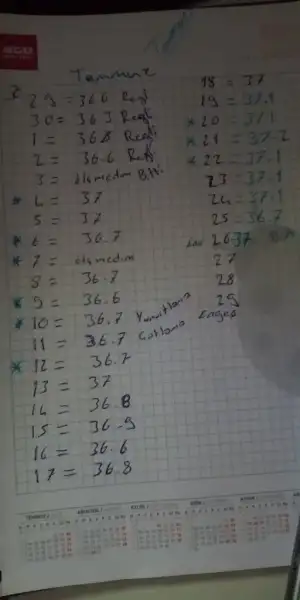 Temmuz
29 = 36.6 Regl
30 = 36.3 Regl
1 = 36.8 Regl
2 = 36.6 Regl
3 = ölçmedim Bitti
* 4 = 37
5 = 37
* 6 = 36.7
* 7 = ölçmedim
8 = 36.7
* 9 = 36.6
* 10 = 36.7 Yumurtlama
11 = 36.7 Çatlama
* 12 = 36.7
13 = 37
14 = 36.8
15 = 36.9
16 = 36.6
17 = 36.8
18 = 37
19 = 37.1
* 20 = 37.1
* 21 = 37.2
* 22 = 37.1
23 = 37.1
24 = 37.1
25 = 36.7
26 37
27
28
29